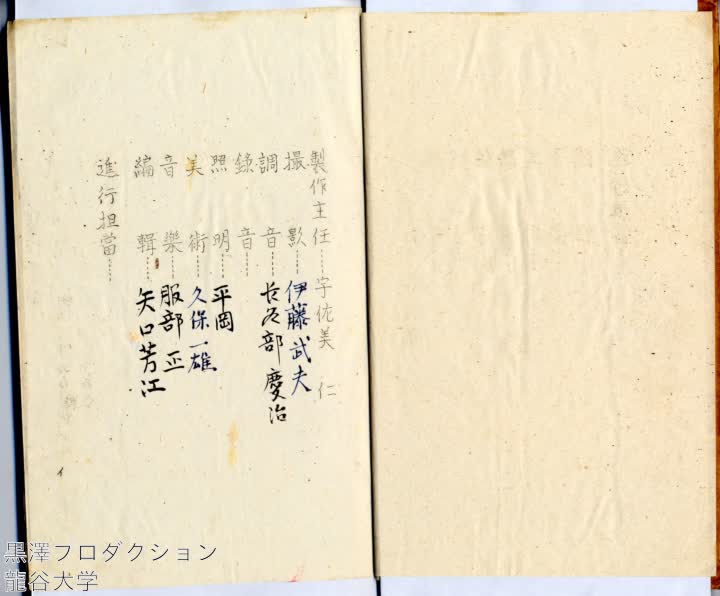 製作主任……宇佐美　仁
撮　影……伊藤武夫
調　音……長谷部慶治
錄　音……
照　明……平岡
美　術……久保一雄
音　樂……服部正
編　輯……矢口芳江
進行担當……
黒澤フロダクション
龍谷大学